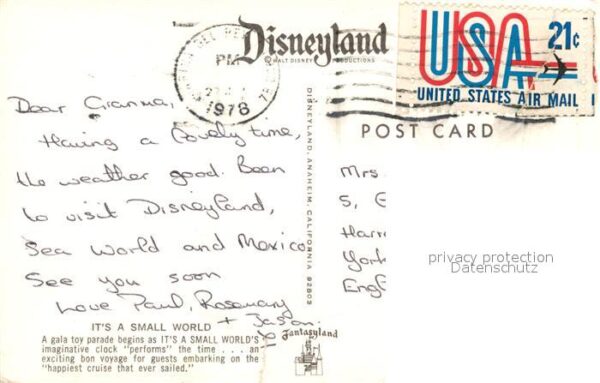 Disneyland
© WALT DISNEY PRODUCTIONS
PM
1978
USA 21c
UNITED STATES AIR MAIL
POST CARD
Dear Granma,
Having a lovely time,
the weather good. Been
to visit Disneyland,
Sea World and Mexico
See you soon
Love Paul, Rosemary
+ Jason
DISNEYLAND, ANAHEIM, CALIFORNIA 92803
Mrs.
5,
Harr
York
Engl
privacy protection
Datenschutz
IT'S A SMALL WORLD
A gala toy parade begins as IT'S A SMALL WORLD'S
imaginative clock "performs" the time . . . an
exciting bon voyage for guests embarking on the
"happiest cruise that ever sailed."
Fantasyland